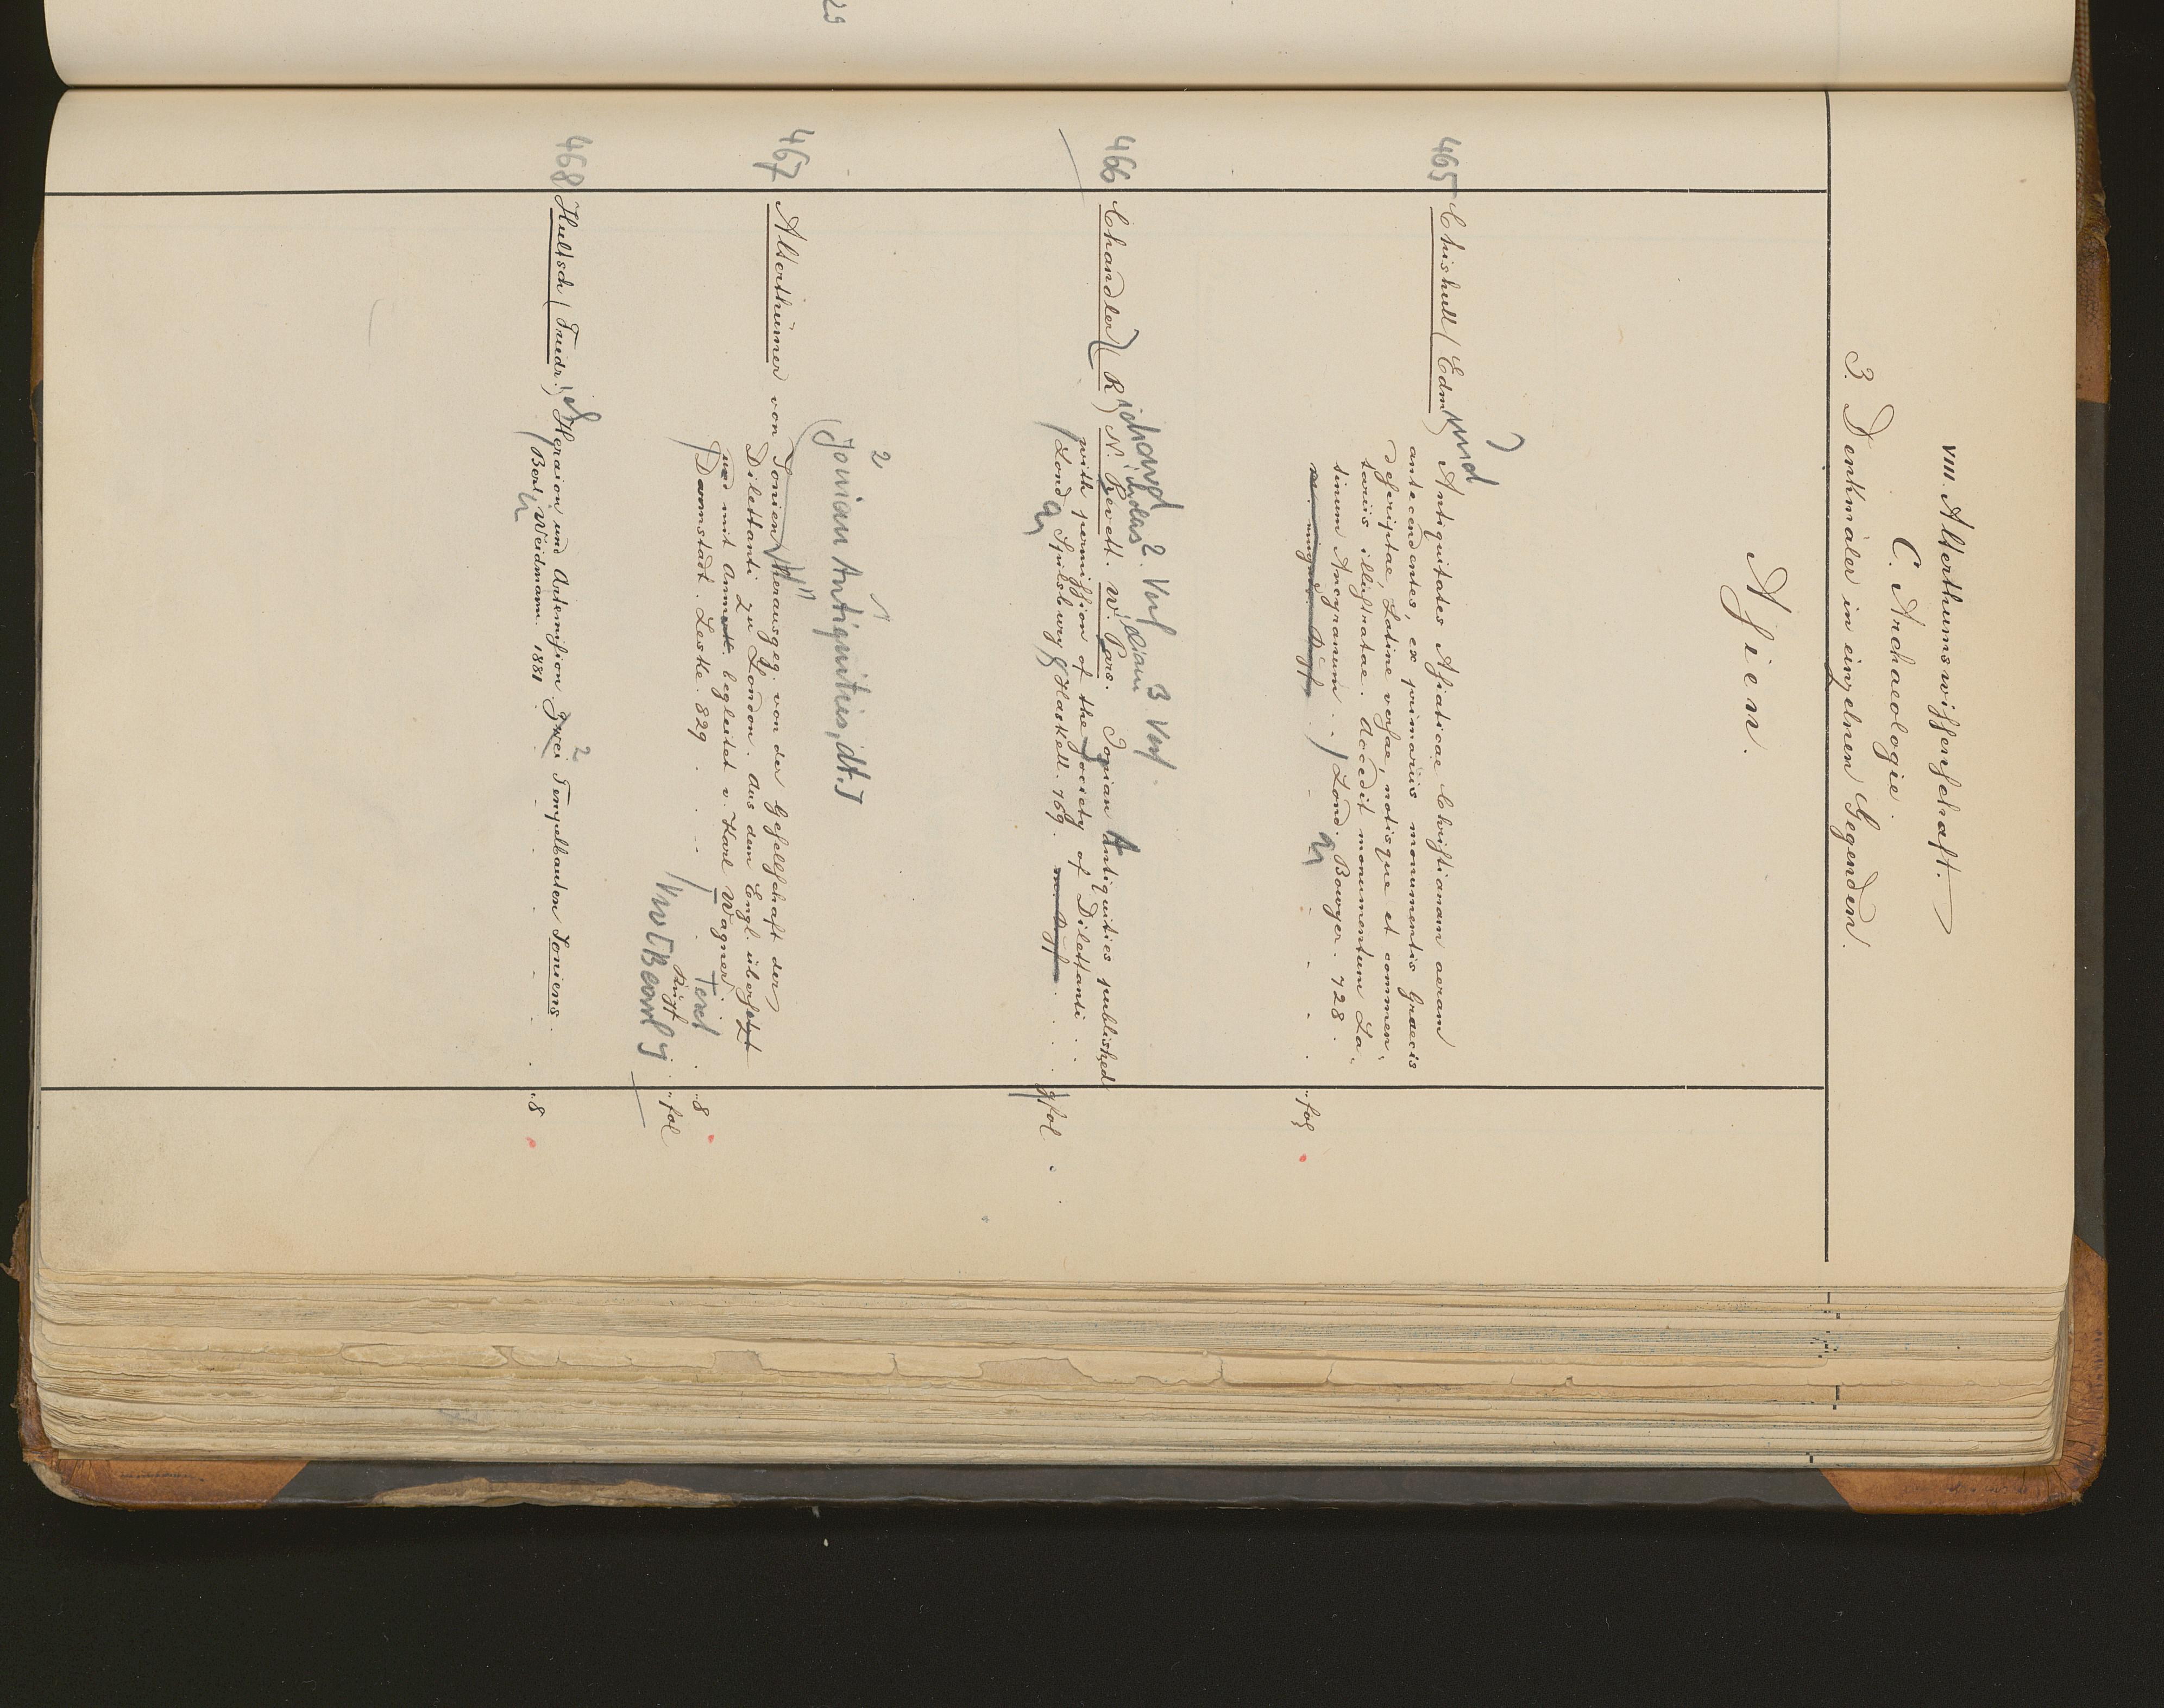 VIII. Alterthumswissenschaft.
C. Archaeologie.
3. Denkmäler in einzelnen Gegenden.
Asien.
465 Chishull (Edmund) Antiquitates Asiaticae Christianam aeram
antecendentes, ex primariis monumentis Graecis
descriptae, Latine versae, notisque et commen-
tariis illustratae. Accedit monumentum La-
tinum Ancyranum. Lond. Bowyer. 728. fol
466 Chandler (Richard) N.icholas Revett. W.illiam Pars. Ionian Antiquities published
2. Verf 3 Verf.
with permission of the Society of Dilettanti
Lond Spilsbury & Haskell. 769. fol
2 1
(Jonian Antiquities, dt.)
467 Alterthümer von Ionien herausgeg. von der Gesellschaft der
Dilettanti zu London. Aus dem Engl. übersetzt
und mit Anmerk. begleitet v. Karl Wagner.
Darmstadt. Leske. 829. Text 8
Kupf fol
468 Hultsch (Friedr.) Heraion und Artemision Zwei Tempelbauten Ioniens.
2
Berl Weidmann. 1881 8